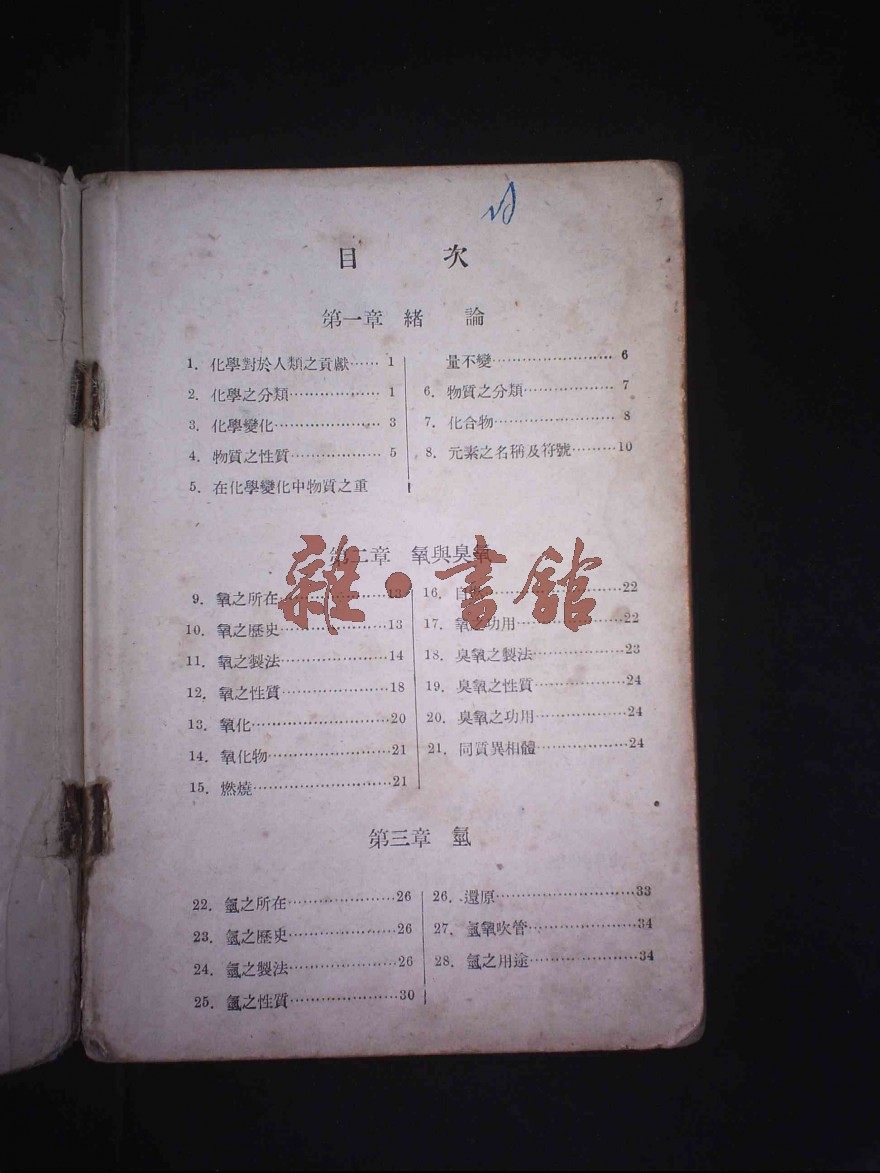 目 次
第一章 緒 論
1. 化學對於人類之貢獻…… 1
2. 化學之分類……………… 1
3. 化學變化………………… 3
4. 物質之性質……………… 5
5. 在化學變化中物質之重
量不變…………………… 6
6. 物質之分類……………… 7
7. 化合物…………………… 8
8. 元素之名稱及符號………10
第二章 氧與臭氧
9. 氧之所在…………………13
10. 氧之歷史…………………13
11. 氧之製法…………………14
12. 氧之性質…………………18
13. 氧化………………………20
14. 氧化物……………………21
15. 燃燒………………………21
16. 自……………………22
17. 氧之功用…………………22
18. 臭氧之製法………………23
19. 臭氧之性質………………24
20. 臭氧之功用………………24
21. 同質異相體………………24
第三章 氫
22. 氫之所在…………………26
23. 氫之歷史…………………26
24. 氫之製法…………………26
25. 氫之性質…………………30
26. 還原………………………33
27. 氫氧吹管…………………34
28. 氫之用途…………………34
雜·書館